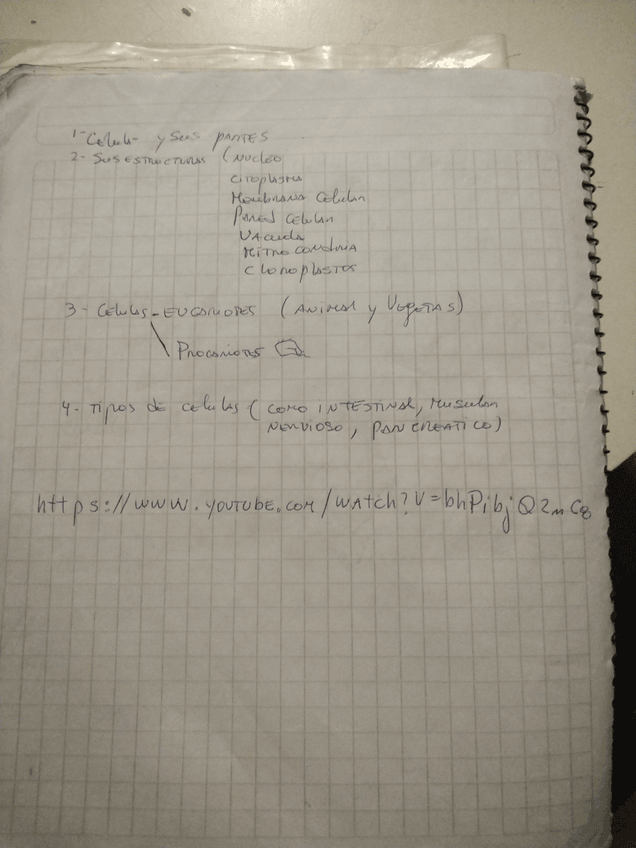 1- Celula y sus partes
2- Sus estructuras (Nucleo
citoplasma
Membrana Celular
Pared Celular
Vacuola
Mitocondria
Cloroplastos
3- Celulas - Eucariotes (Animal y Vegetas)
Procariotes
4- Tipos de celulas (como intestinal, muscular
nervioso, pancreatico)
https://www.youtube.com/watch?v=bhPibjQ2mC8